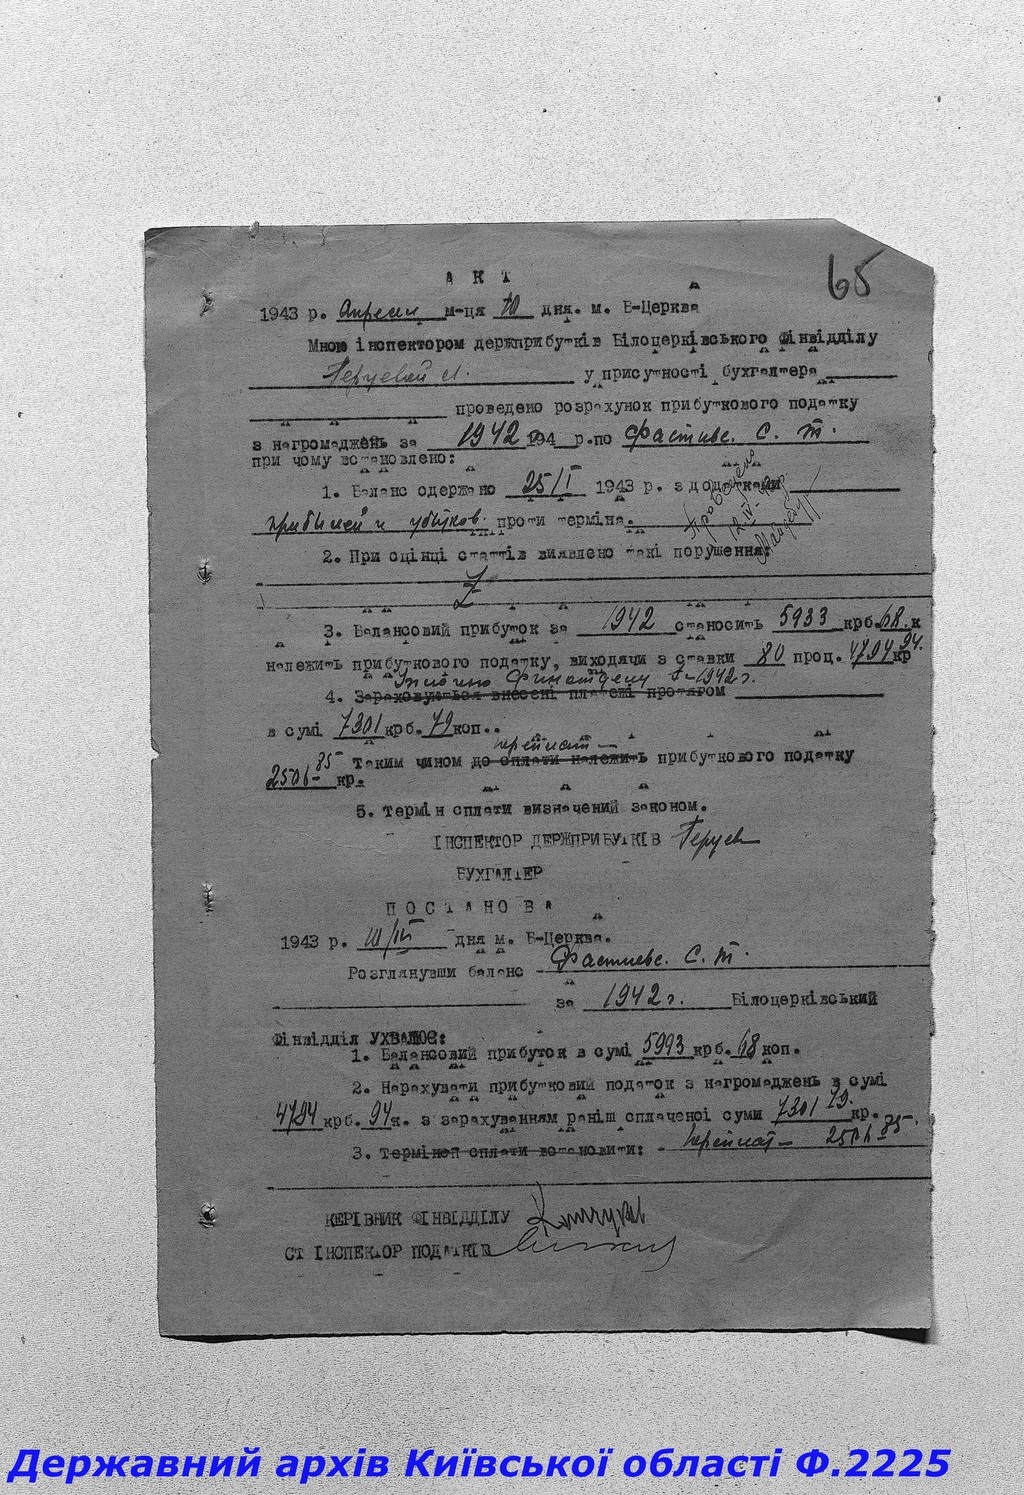 65
АКТ
1943 р. Апреля м-ця 10 дня. м. Б-Церква
Мною інспектором держприбутків Білоцерківського Фінвідділу
у присутності бухгалтера
проведено розрахунок прибуткового податку
з нагромаджень за 1942 194 р. по Фастивс. С. Т.
при чому встановлено:
1. Баланс одержано 25/I 1943 р. з додатками
прибылей и убытков. проти терміна.
2. При оцінці статтів виявлено такі порушення:
Z
3. Балансовий прибуток за 1942 становить 5933 крб. 68 к
належить прибуткового податку, виходячи з ставки 80 проц. 4794 94 кр
4. Зараховуються внесені платежі протягом
в сумі 7301 крб. 79 коп..
переплат
Таким чином до сплати належить прибуткового податку
2506-85 кр.
5. Термін сплати визначений законом.
ІНСПЕКТОР ДЕРЖПРИБУТКІВ
БУХГАЛТЕР
ПОСТАНОВА
1943 р. 10/IV дня м. Б-Церква.
Розглянувши баланс Фастивс. С. Т.
за 1942 г. Білоцерківський
Фінвідділ УХВАЛЮЄ:
1. Балансовий прибуток в сумі 5993 крб. 68 коп.
2. Нарахувати прибутковий податок з нагромаджень в сумі
4794 крб. 94 к. з зарахуванням раніш сплаченої суми 7301 79 кр.
3. Терміной сплати встановити: переплат - 2506 85
КЕРІВНИК ФІНВІДДІЛУ
СТ ІНСПЕКТОР ПОДАТКІВ
Державний архів Київської області Ф.2225